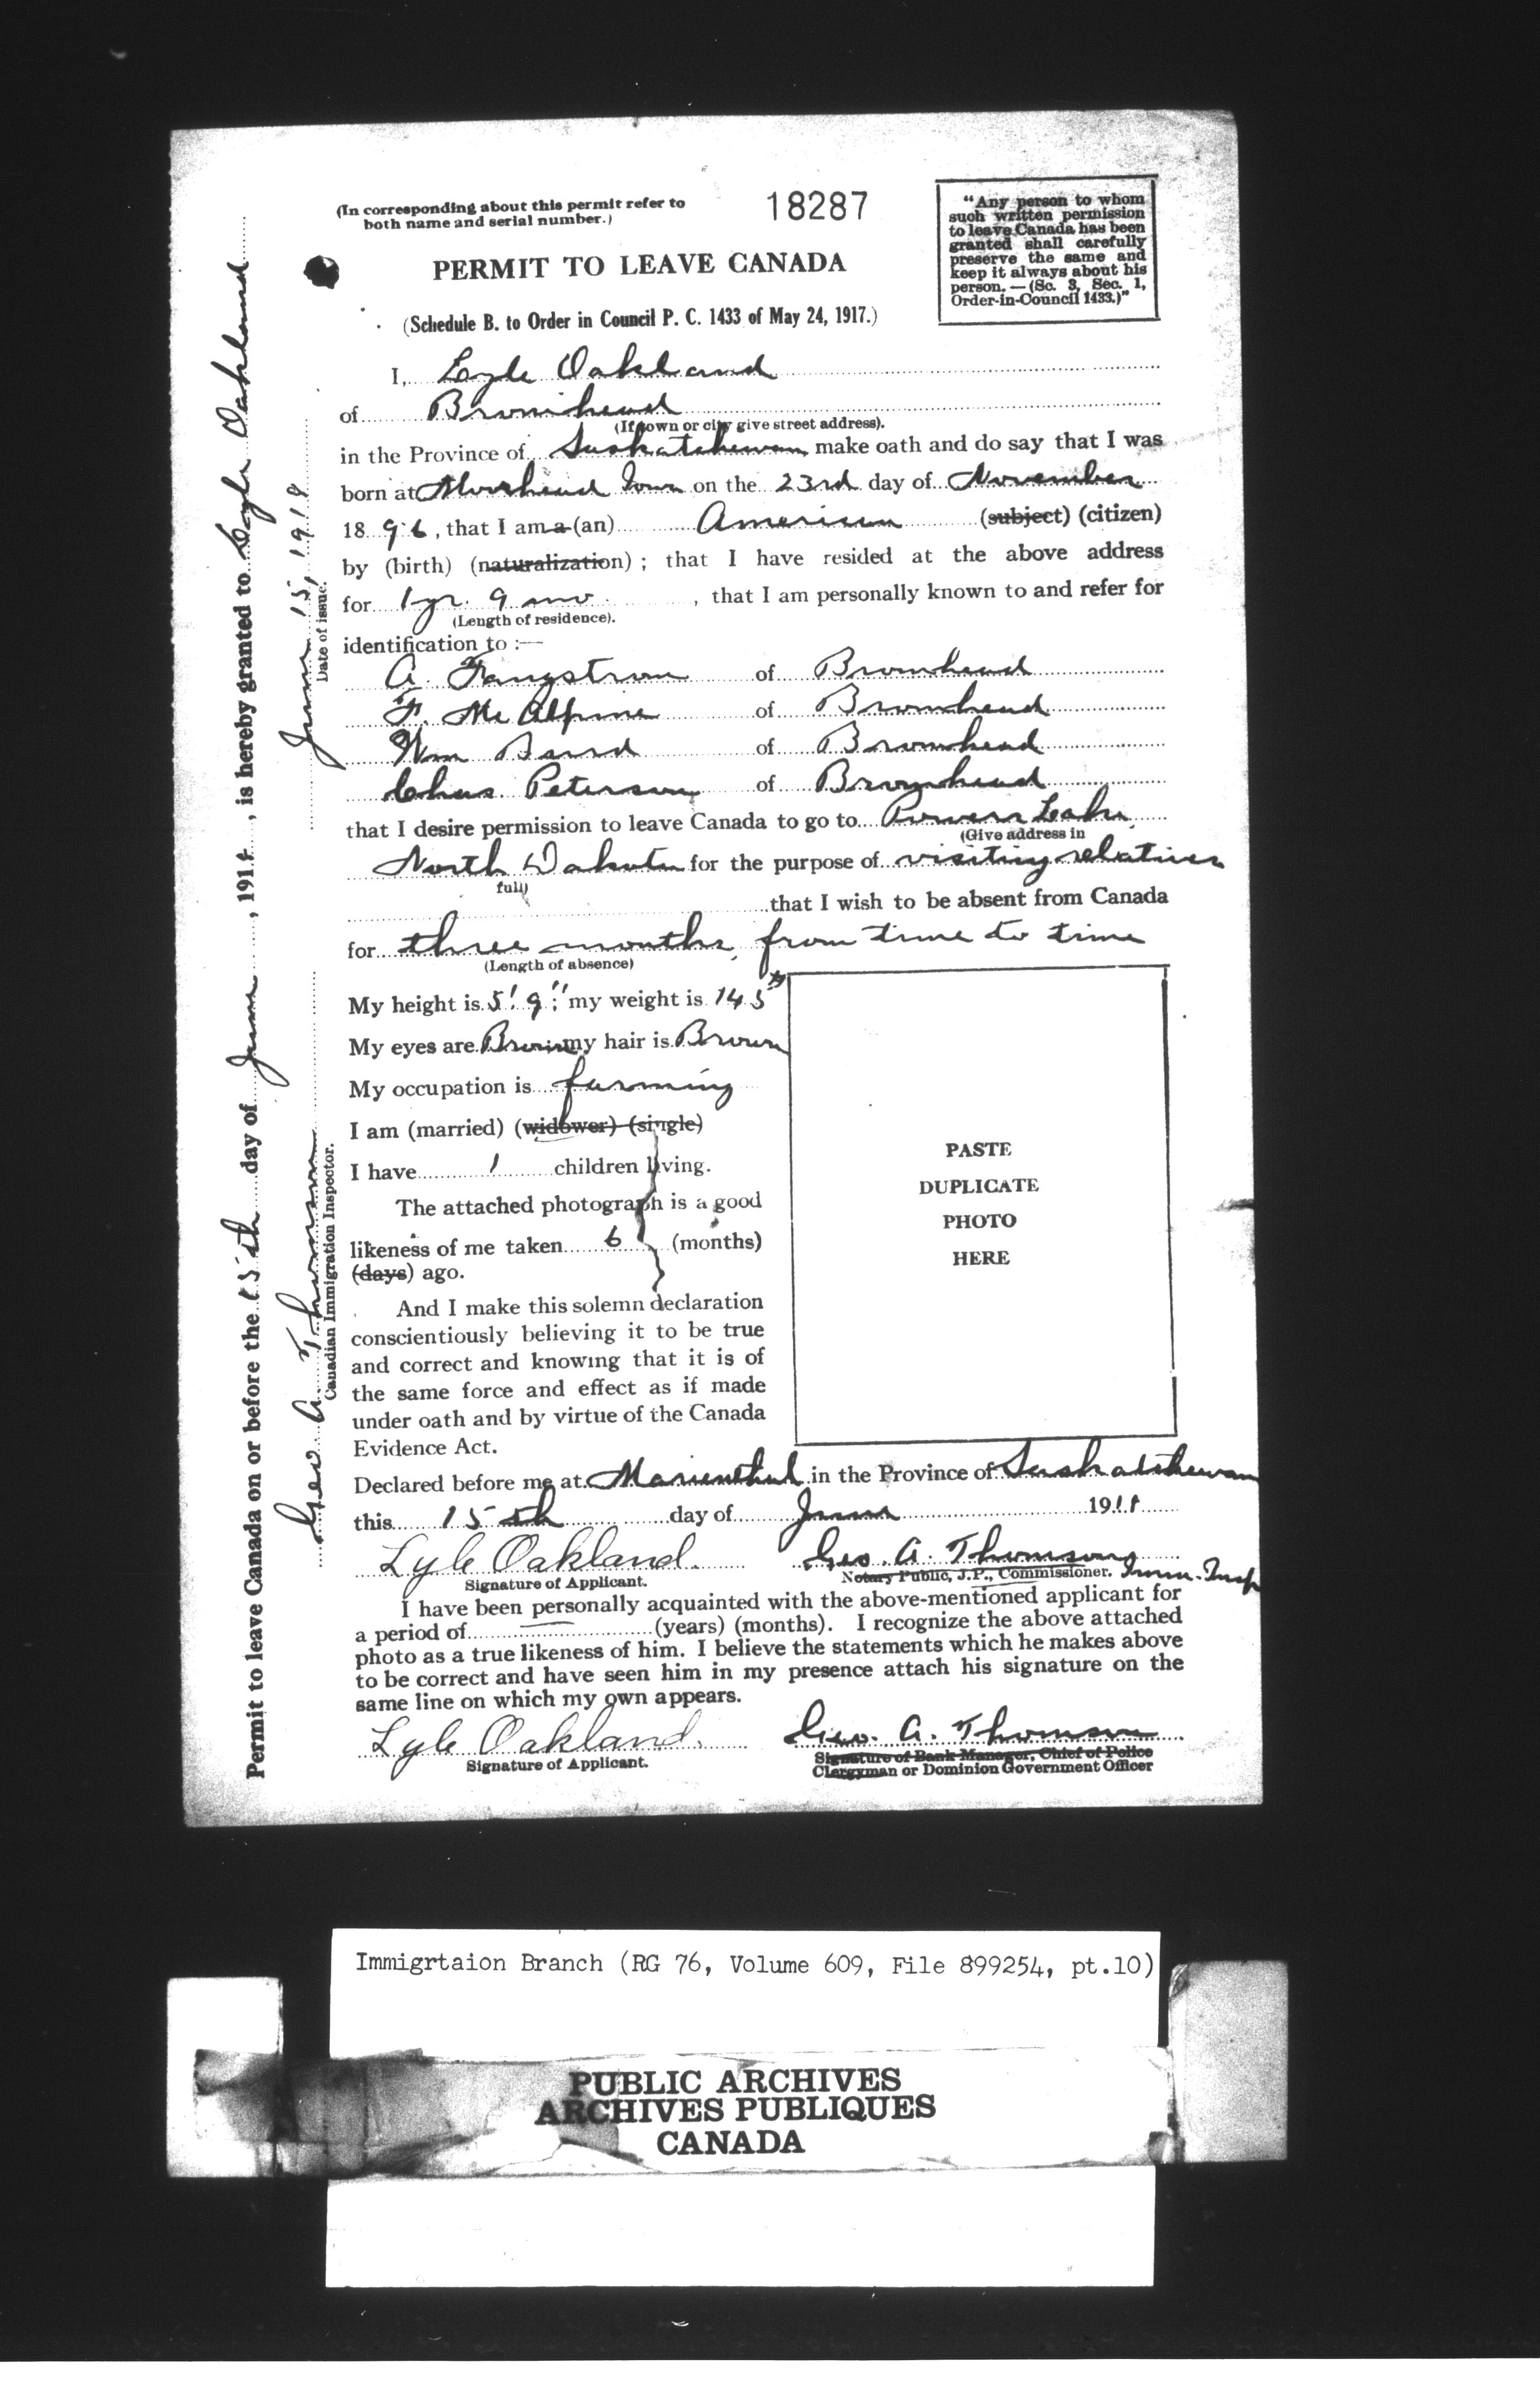 (In corresponding about this permit refer to
both name and serial number.)
18287
"Any person to whom
such written permission
to leave Canada has been
granted shall carefully
preserve the same and
keep it always about his
person. — (Sc. 3, Sec. 1,
Order-in-Council 1433.)"
PERMIT TO LEAVE CANADA
(Schedule B. to Order in Council P. C. 1433 of May 24, 1917.)
I, Lyle Oakland
of Bromhead
(If town or city give street address).
in the Province of Saskatchewan make oath and do say that I was
born at Moorhead Iowa on the 23rd day of November
1896, that I am a (an) American (subject) (citizen)
by (birth) (naturalization) ; that I have resided at the above address
for 1 yr. 9 mo. , that I am personally known to and refer for
(Length of residence).
identification to :—
A. Fangstrom of Bromhead
F. McAlpine of Bromhead
Wm Baird of Bromhead
Chas. Peterson of Bromhead
that I desire permission to leave Canada to go to Powers Lake
(Give address in
North Dakota for the purpose of visiting relatives
full)
that I wish to be absent from Canada
for three months, from time to time
(Length of absence)
My height is 5' 9" my weight is 145#
My eyes are Brown my hair is Brown
My occupation is farming
I am (married) (widower) (single)
I have 1 children living.
The attached photograph is a good
likeness of me taken 6 (months)
(days) ago.
And I make this solemn declaration
conscientiously believing it to be true
and correct and knowing that it is of
the same force and effect as if made
under oath and by virtue of the Canada
Evidence Act.
PASTE
DUPLICATE
PHOTO
HERE
Declared before me at Marienthal in the Province of Saskatchewan
this 15th day of June 1918
Lyle Oakland. Geo. A. Thomson
Signature of Applicant. Notary Public, J.P., Commissioner. Imm. Insp
I have been personally acquainted with the above-mentioned applicant for
a period of (years) (months). I recognize the above attached
photo as a true likeness of him. I believe the statements which he makes above
to be correct and have seen him in my presence attach his signature on the
same line on which my own appears.
Lyle Oakland. Geo. A. Thomson
Signature of Applicant. Signature of Bank Manager, Chief of Police
Clergyman or Dominion Government Officer
Permit to leave Canada on or before the 15th day of June, 1918, is hereby granted to Lyle Oakland
Geo A. Thomson June 15, 1918
Canadian Immigration Inspector. Date of issue.
Immigrtaion Branch (RG 76, Volume 609, File 899254, pt.10)
PUBLIC ARCHIVES
ARCHIVES PUBLIQUES
CANADA